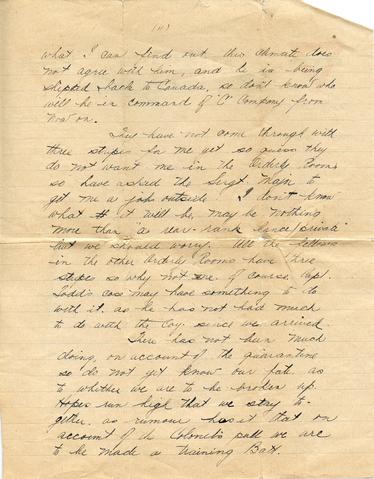 (11)
what I can find out this climate does
not agree with him, and he is being
shipped back to Canada, so don't know who
will be in command of "A" Company from
now on.
They have not come through with
three stripes for me yet so guess they
do not want me in the Orderly Room
so have asked the Sergt. Major to
get me a job outside. I don't know
what it will be, may be nothing
more than a rear-rank
but we should worry. All the fellows
in the other Orderly Rooms have three
stripes so why not me. Of course, Capt.
Todd's case may have something to do
with it, as he has not had much
to do with the Coy. since we arrived.
There has not been much
doing, on account of the quarantine
so do not yet know our fate as
to whether we are to be broken up.
Hopes run high that we stay to-
gether, as rumour has it that on
account of the Colonel's pull we are
to be made a Training Batt.